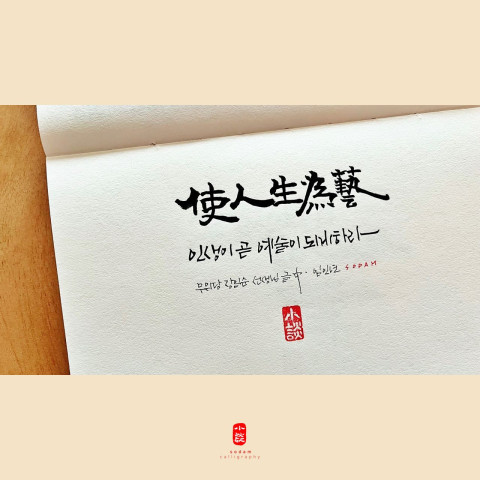 使人生為藝
인생이 곧 예술이 되게하라
무위당 장일순 선생님 글 中. 임인년 SODAM
小談
小談
sodam
calligraphy